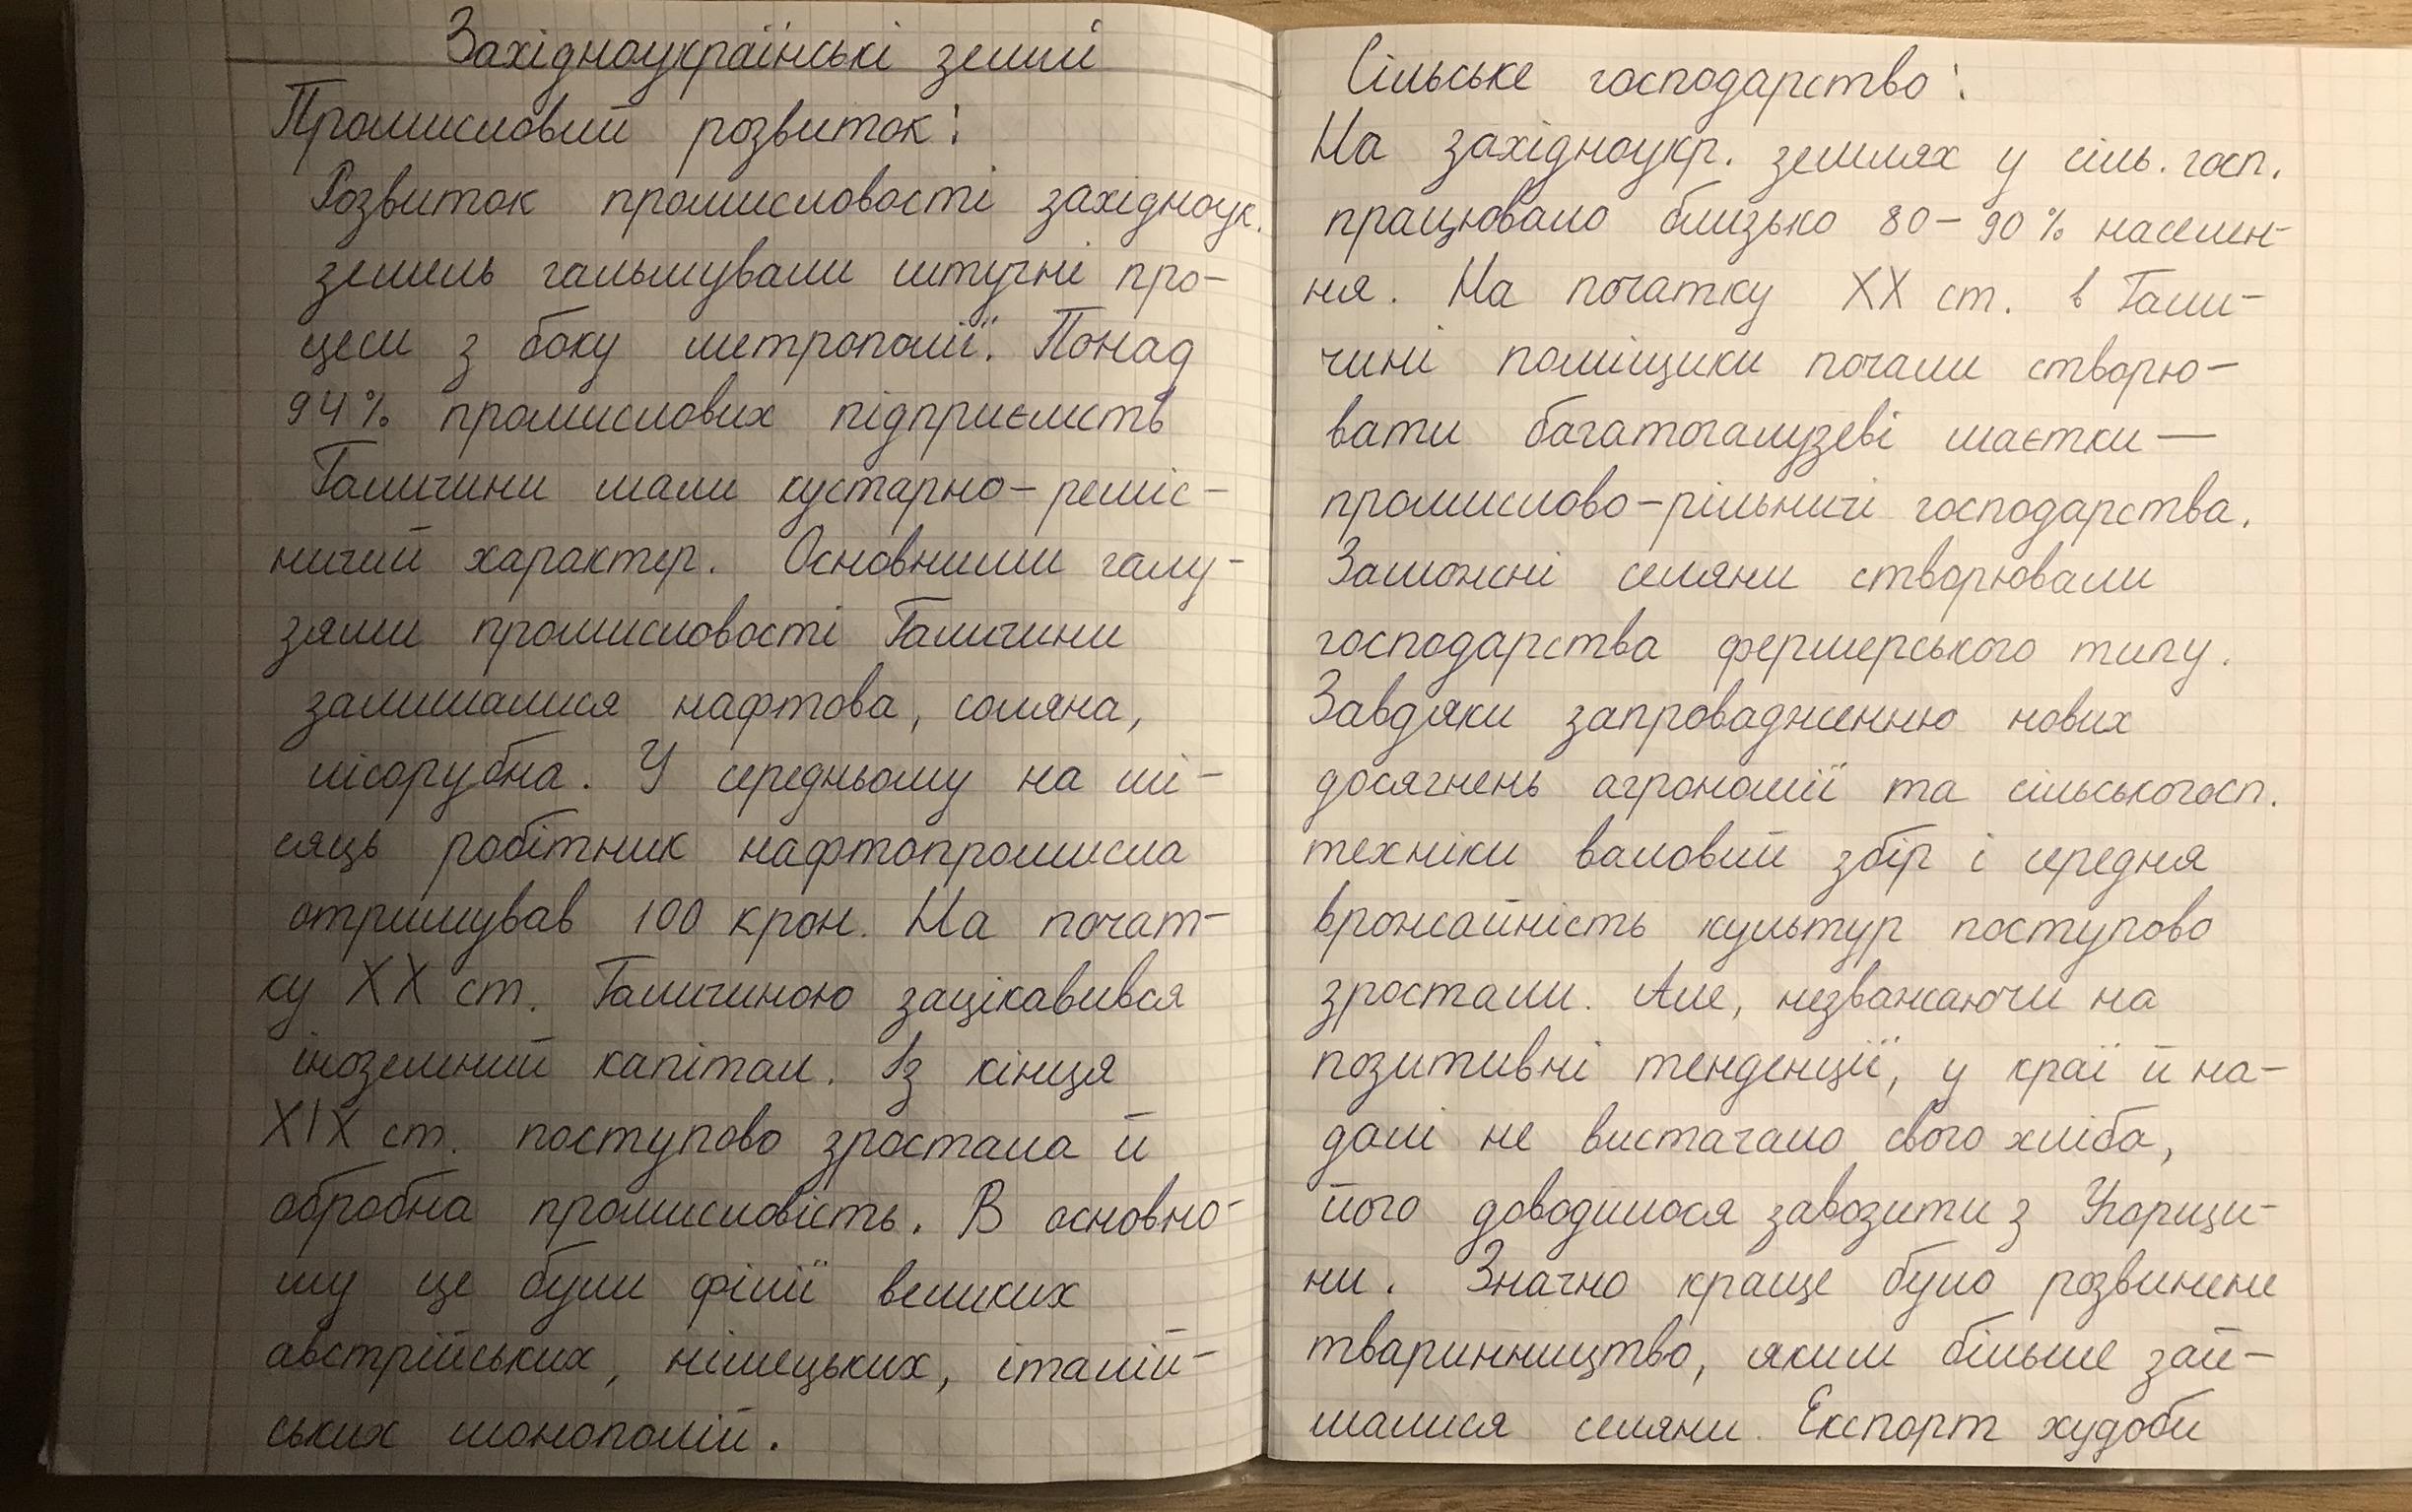 Західноукраїнські землі
Промисловий розвиток:
Розвиток промисловості західноук.
земель гальмували штучні про-
цеси з боку метрополії. Понад
94% промислових підприємств
Галичини мали кустарно-реміс-
ничий характер. Основними галу-
зями промисловості Галичини
залишалися нафтова, соляна,
лісорубна. У середньому на мі-
сяць робітник нафтопромисла
отримував 100 крон. На почат-
ку XX ст. Галичиною зацікавився
іноземний капітал. Із кінця
XIX ст. поступово зростала й
обробна промисловість. В основно-
му це були філії великих
австрійських, німецьких, італій-
ських монополій.
Сільське господарство:
На західноукр. землях у сіль. госп.
працювало близько 80-90% населен-
ня. На початку XX ст. в Гали-
чині поміщики почали створю-
вати багатогалузеві маєтки —
промислово-рільничі господарства.
Заможні селяни створювали
господарства фермерського типу.
Завдяки запровадженню нових
досягнень агрономії та сільськогосп.
техніки валовий збір і середня
врожайність культур поступово
зростали. Але, незважаючи на
позитивні тенденції, у краї й на-
далі не вистачало свого хліба,
його доводилося завозити з Угорщи-
ни. Значно краще було розвинене
тваринництво, яким більше зай-
малися селяни. Експорт худоби